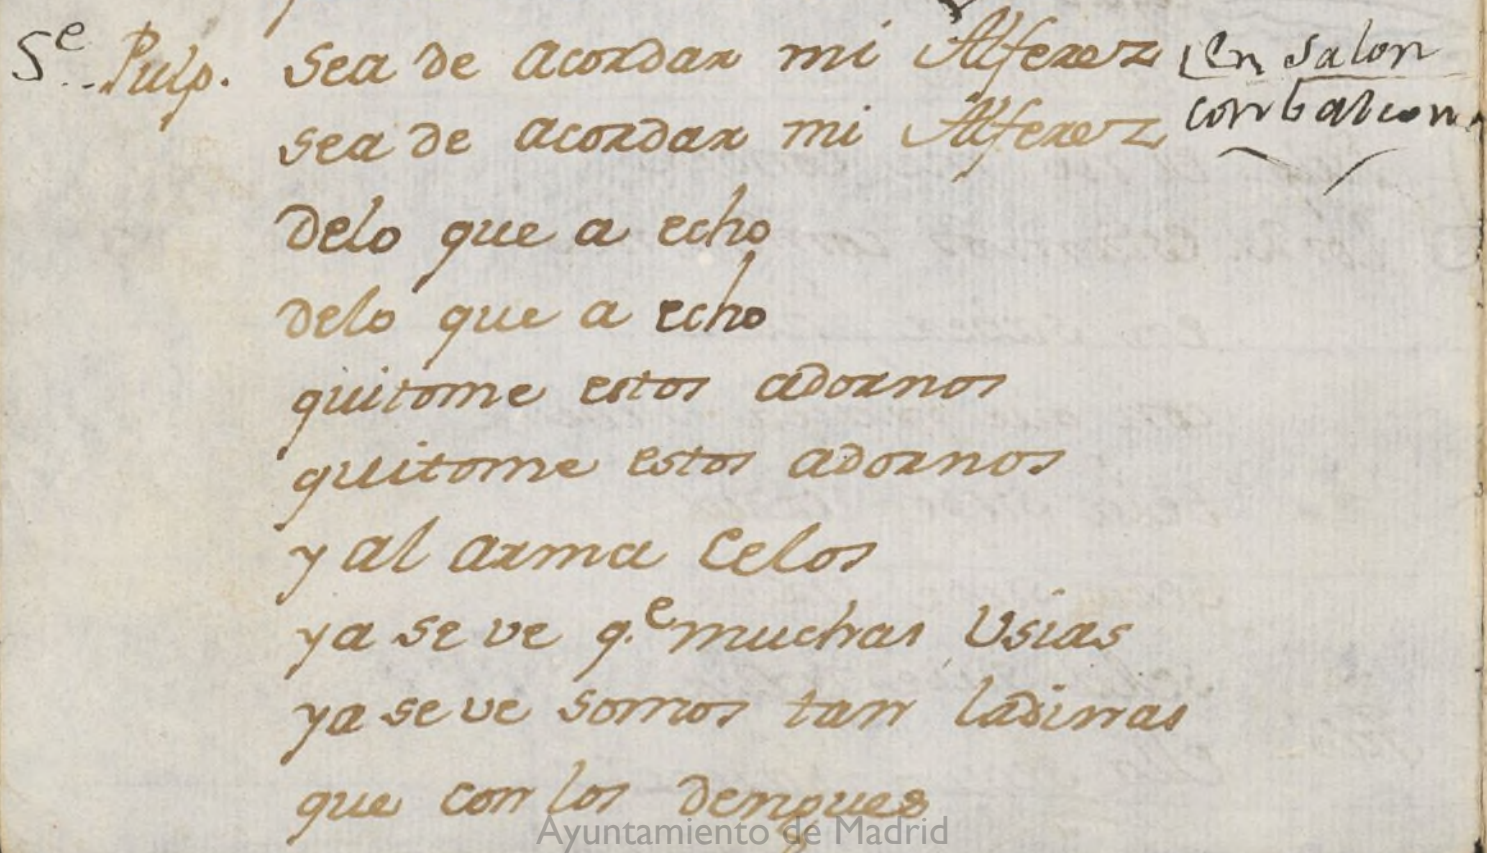 Sᵉ Pulp. sea de acordar mi Alferez en salon
sea de acordar mi Alferez con balcon
delo que a echo
delo que a echo
quitome estos adornos
quitome estos adornos
y al arma Celos
ya se ve q.ᵉ muchas Usias
ya se ve somos tan ladinas
que con los dengues
Ayuntamiento de Madrid